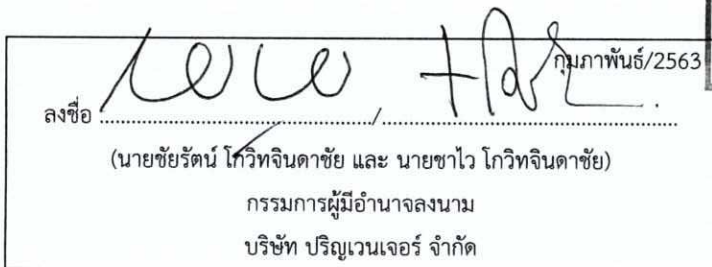 กุมภาพันธ์/2563
ลงชื่อ ............................................/..............................................
(นายชัยรัตน์ โกวิทจินดาชัย และ นายชาไว โกวิทจินดาชัย)
กรรมการผู้มีอำนาจลงนาม
บริษัท ปริญเวนเจอร์ จำกัด